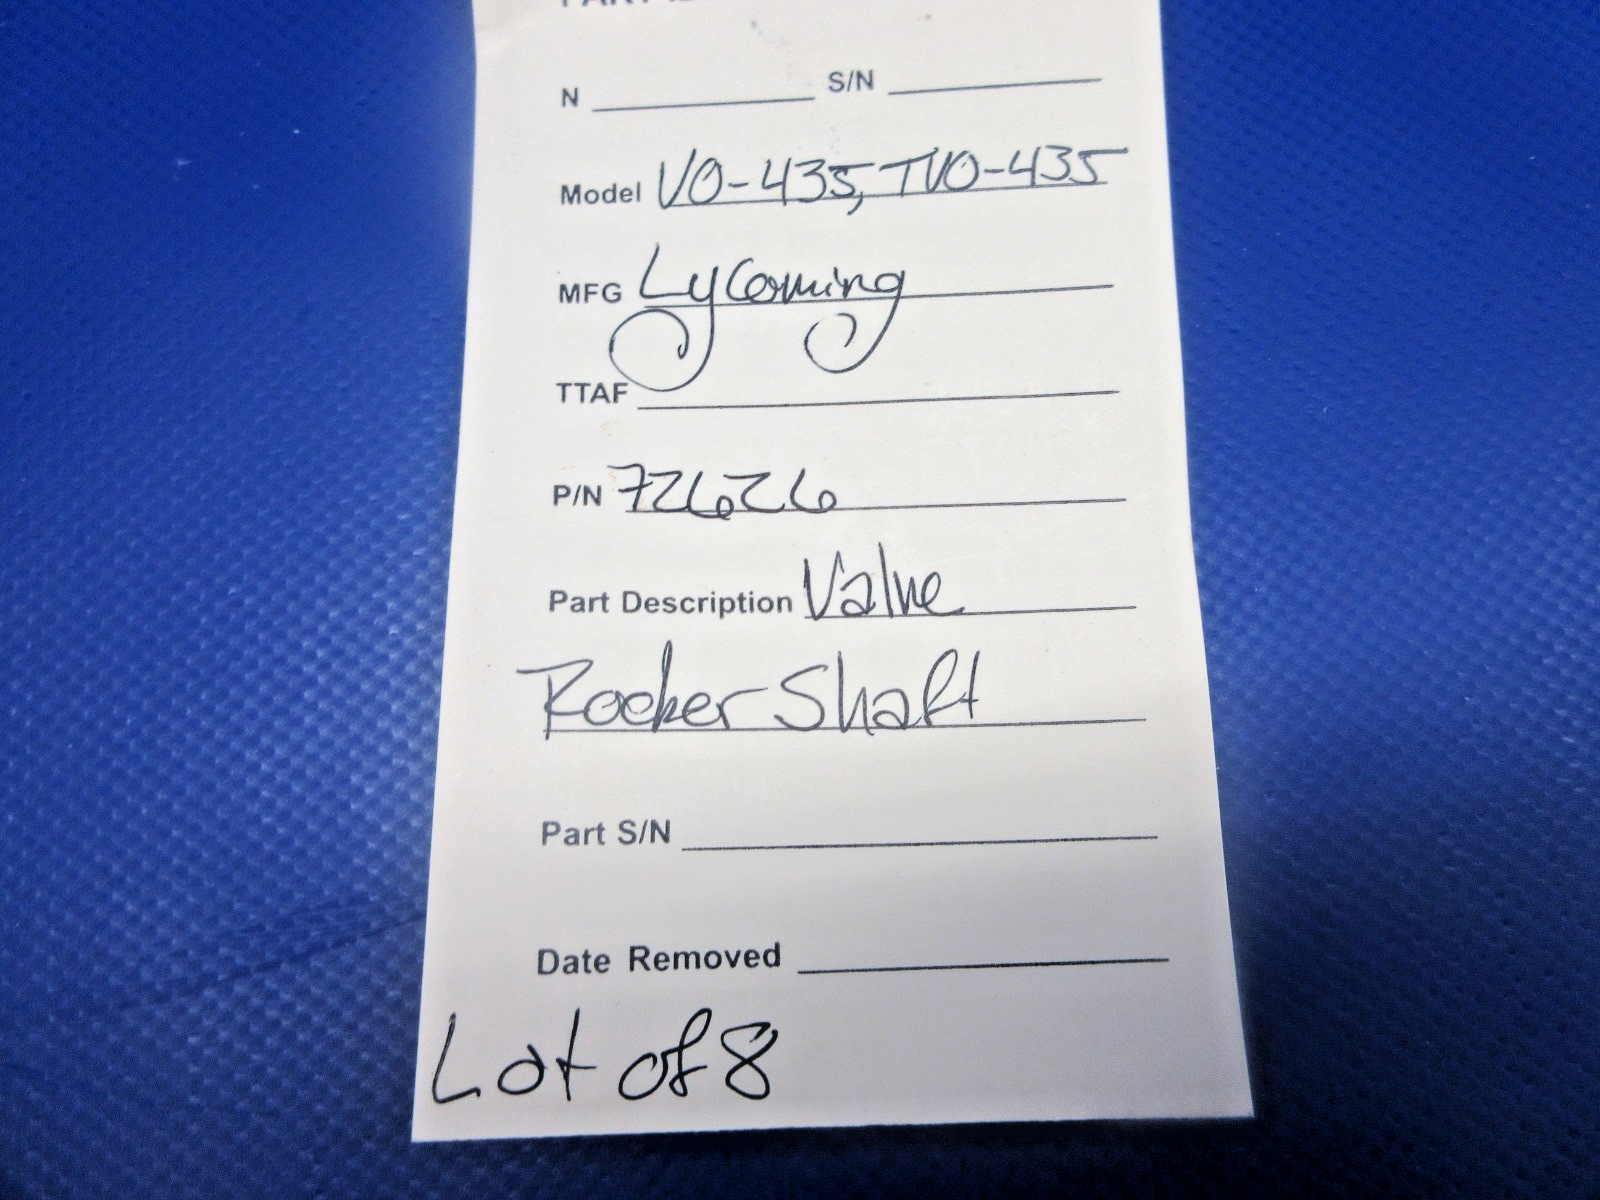 N S/N
Model VO-435, TVO-435
MFG Lycoming
TTAF
P/N 72626
Part Description Valve
Rocker Shaft
Part S/N
Date Removed
Lot of 8